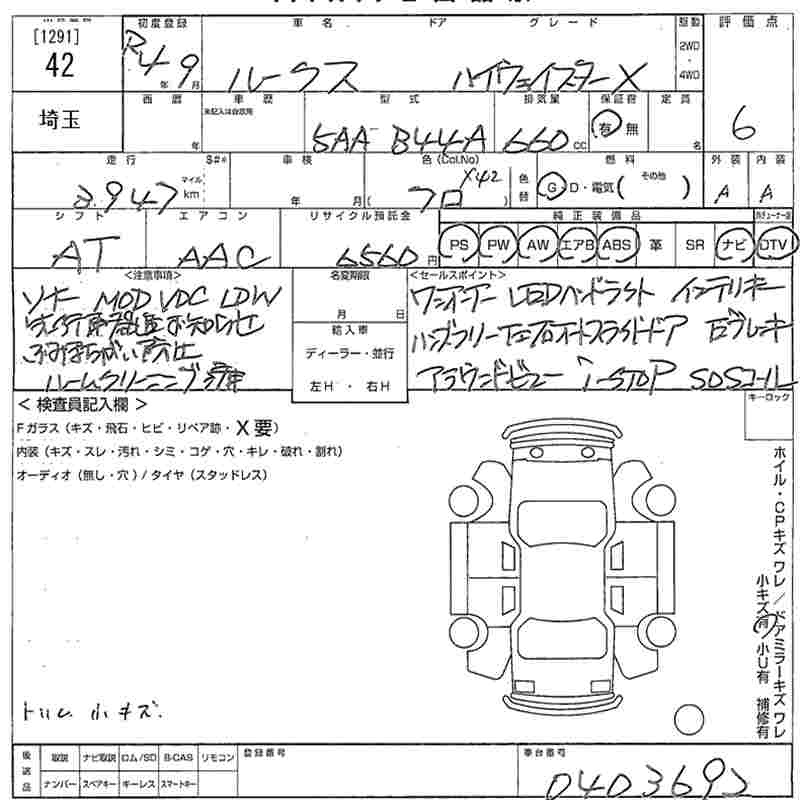 [1291]
42
初度登録
R4年9月
車名
ルークス
ドア
グレード
ハイウェイスターX
駆動
2WD
・
4WD
評価点
6
埼玉
西暦
年
車歴
未記入は自家用
型式
5AA B44A
排気量
660cc
保証書
有 無
定員
名
走行
2,947
マイル
km
S#*
車検
年 月
色(Col.No)
クロ X42
色替
燃料
G・D・電気( その他 )
外装
A
内装
A
シフト
AT
エアコン
AAC
リサイクル預託金
6560円
純正装備品
PS PW AW エアB ABS 革 SR ナビ DTV
<注意事項>
ソナー MOD VDC LDW
ふみまちがい防止
ルームクリーニング済
名変期限
月 日
輸入車
ディーラー・並行
左H ・ 右H
<セールスポイント>
ワンオーナー LEDヘッドライト インテリキー
ハンズフリー 左右オートスライドドア
アラウンドビュー i-STOP SOSコール
キーロック
< 検査員記入欄 >
Fガラス(キズ・飛石・ヒビ・リペア跡・X要)
内装(キズ・スレ・汚れ・シミ・コゲ・穴・キレ・破れ・割れ)
オーディオ(無し・穴)/タイヤ(スタッドレス)
ホイル・CPキズ ワレ/ドアミラーキズ ワレ
小キズ有 小U有 補修有
トリム 小キズ.
後送品
取説 ナビ取説 ロム/SD B-CAS リモコン
ナンバー スペアキー キーレス スマートキー
登録番号
車台番号
0403692